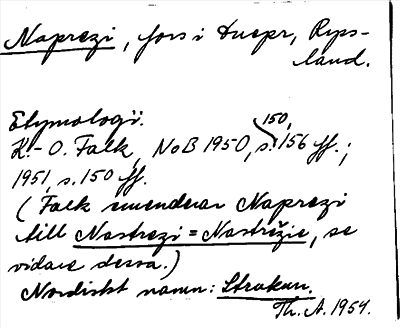 Naprezi, fors i Dnepr, Ryss-
land.
Etymologi.
K.-O. Falk, NoB 1950, s. 150, 156 ff.;
1951, s. 150 ff.
(Falk emenderar Naprezi
till Nastrezi = Nastrěžie, se
vidare dessa.)
Nordiskt namn: Strukun.
Th. A. 1954.